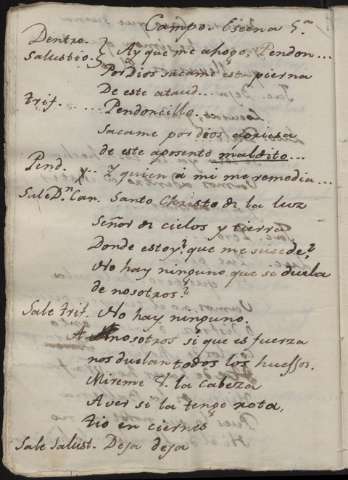 Campo. Escena 5.ª
Dentro. Salustio. } Ay que me ahogo. Pendon...
Por dios sacame esta pierna
De este ataud...
Trif. ... Pendoncillo.
Sacame por dios
de este aposento maldito...
Pend. y.. Y quien à mi me remedia...
Sale D.n Can. Santo Christo de la luz
Señor de cielos y tierra
Donde estoy? que me sucede?
No hay ninguno que se duela
de nosotros?
Sale Trif. No hay ninguno.
A nosotros si que es fuerza
nos duelan todos los huessos.
Mireme V. la cabeza
A ver si la tengo rota,
tio en ciernes
Sale Salust. Deja deja